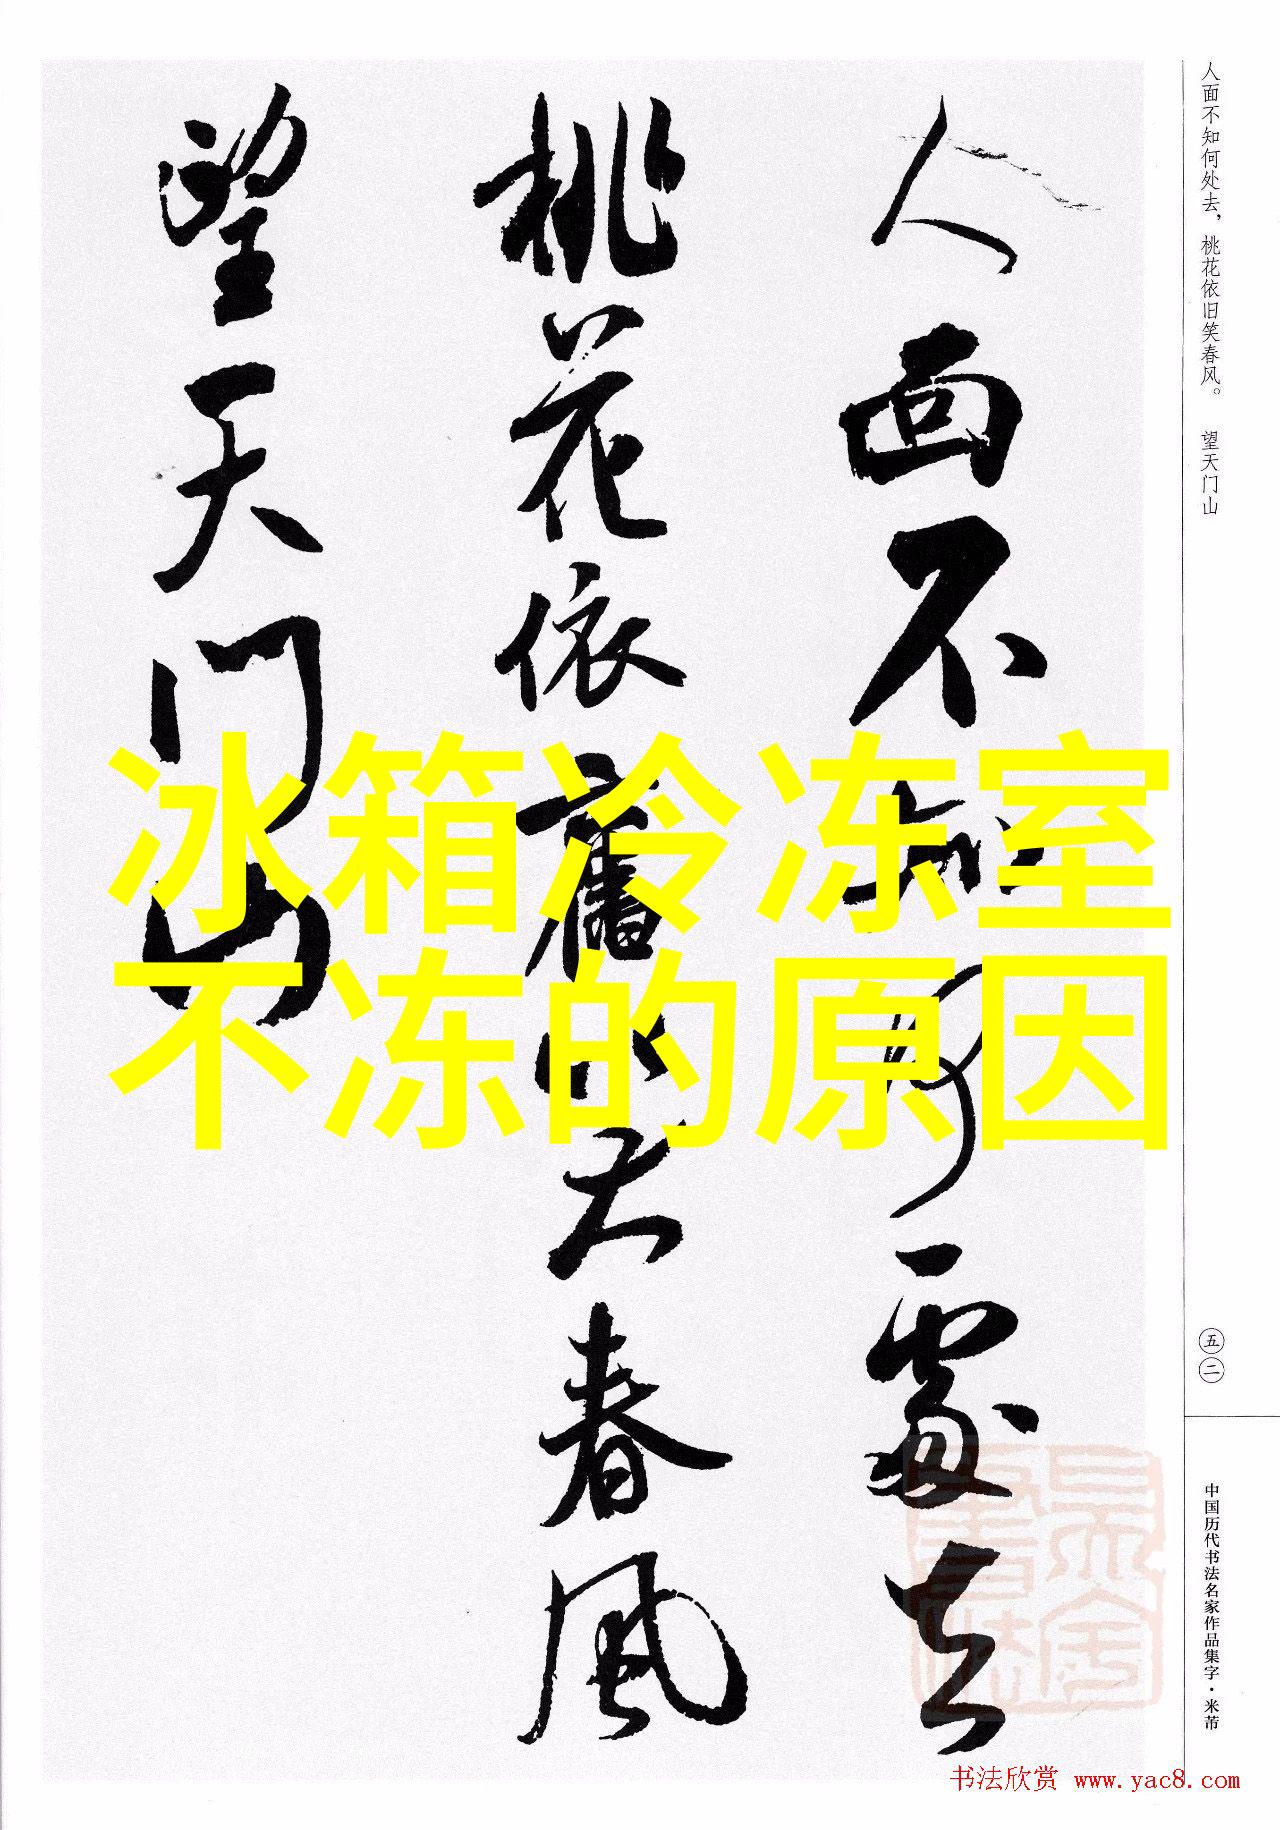 人面不知何处去，桃花依旧笑春风。 望天门山
人面不知何處去
桃花依舊笑春風
望天门山
冰箱冷冻室
不冻的原因
五二
中国历代书法名家作品集字·米芾
书法欣赏 www.yac8.com